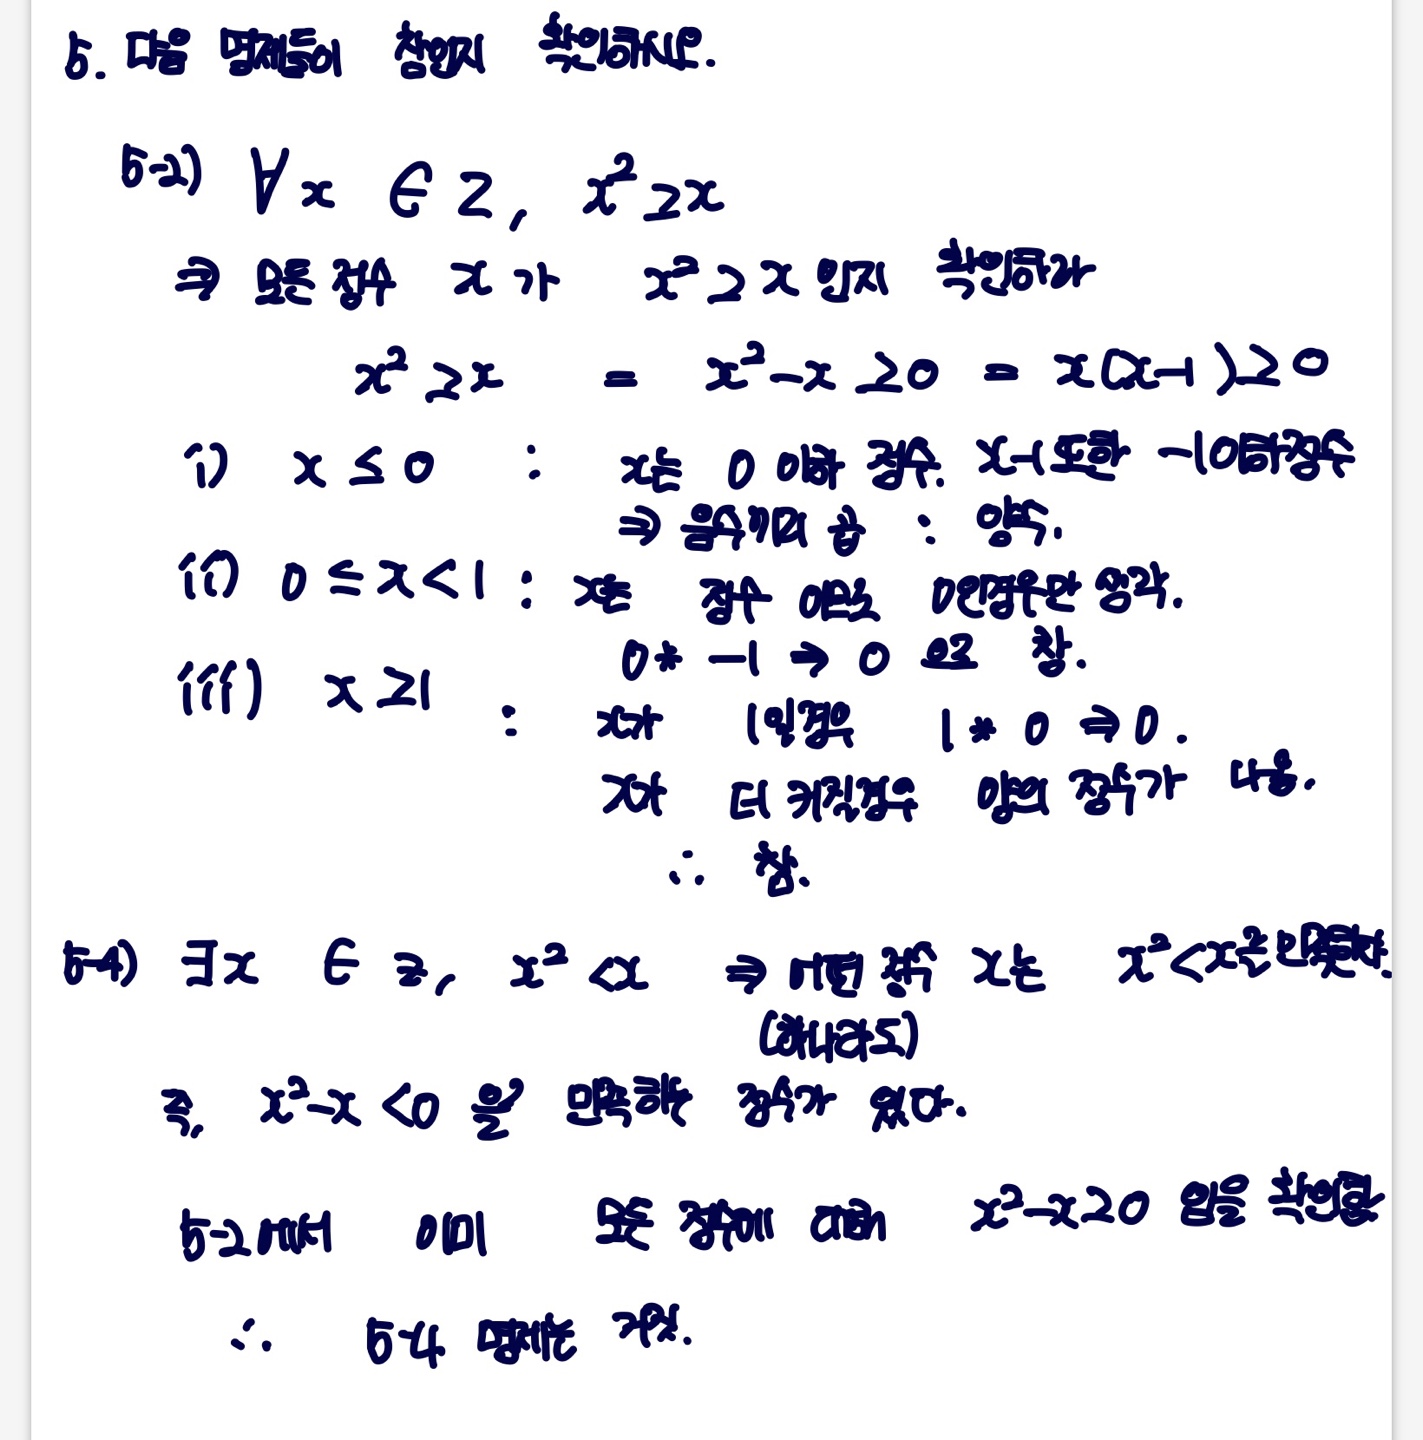 5. 다음 명제들이 참인지 확인하시오.
5-2) ∀x ∈ Z, x² ≥ x
⇒ 모든 정수 x가 x² ≥ x 인지 확인하라
x² ≥ x = x²-x ≥ 0 = x(x-1) ≥ 0
i) x ≤ 0 : x는 0 이하 정수. x-1 또한 -1이하정수
⇒ 음수끼리 곱 : 양수.
ii) 0 ≤ x < 1 : x는 정수 이므로 0인경우만 생각.
0 * -1 ⇒ 0 으로 참.
iii) x ≥ 1 : x가 1일경우 1 * 0 ⇒ 0.
x가 더 커질경우 양의 정수가 나옴.
∴ 참.
5-4) ∃x ∈ Z, x² < x ⇒ 어떤 정수 x는 x² < x를 만족한다.
(하나라도)
즉, x²-x < 0 을 만족하는 정수가 있다.
5-2에서 이미 모든 정수에 대해 x²-x ≥ 0 임을 확인함
∴ 5-4 명제는 거짓.